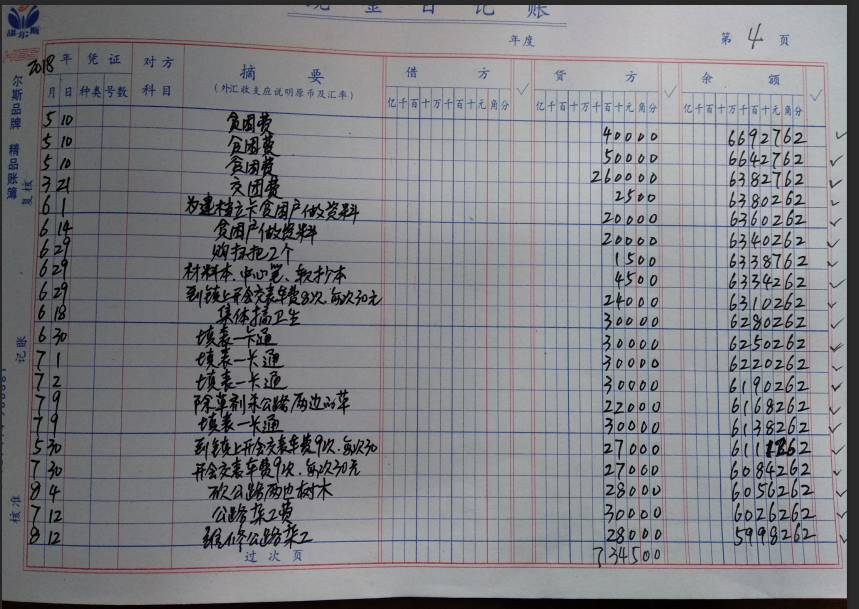 现金日记账
年度
第 4 页
2018年 凭证 对方 摘要 借方 贷方 余额
月 日 种类 号数 科目 (外汇收支应说明原币及汇率) 亿千百十万千百十元角分 亿千百十万千百十元角分 亿千百十万千百十元角分
5 10 贫困费 40000 6692762
5 10 贫困费 50000 6642762
5 10 贫困费 260000 6382762
3 21 交团费 2500 6380262
6 1 为建档立卡贫困户做资料 20000 6360262
6 14 贫困户做资料 20000 6340262
6 29 购扫把2个 1500 6338762
6 29 材料本、中心笔、软抄本 4500 6334262
6 29 到镇上开会交表车费8次、每次30元 24000 6310262
6 18 集体搞卫生 30000 6280262
6 30 填表一卡通 30000 6250262
7 1 填表一卡通 30000 6220262
7 2 填表一卡通 30000 6190262
7 9 除草剂杀公路两边的草 22000 6168262
7 9 填表一卡通 30000 6138262
5 30 到镇上开会交表车费9次、每次30 27000
7 30 开会交表车费9次、每次30元 27000 6084262
8 4 砍公路两边树木 28000 6056262
7 12 公路杂工费 30000 6026262
8 12 维修公路杂工 28000 5998262
过次页 734500
尔斯品牌 精品账簿
复核
记账
核准